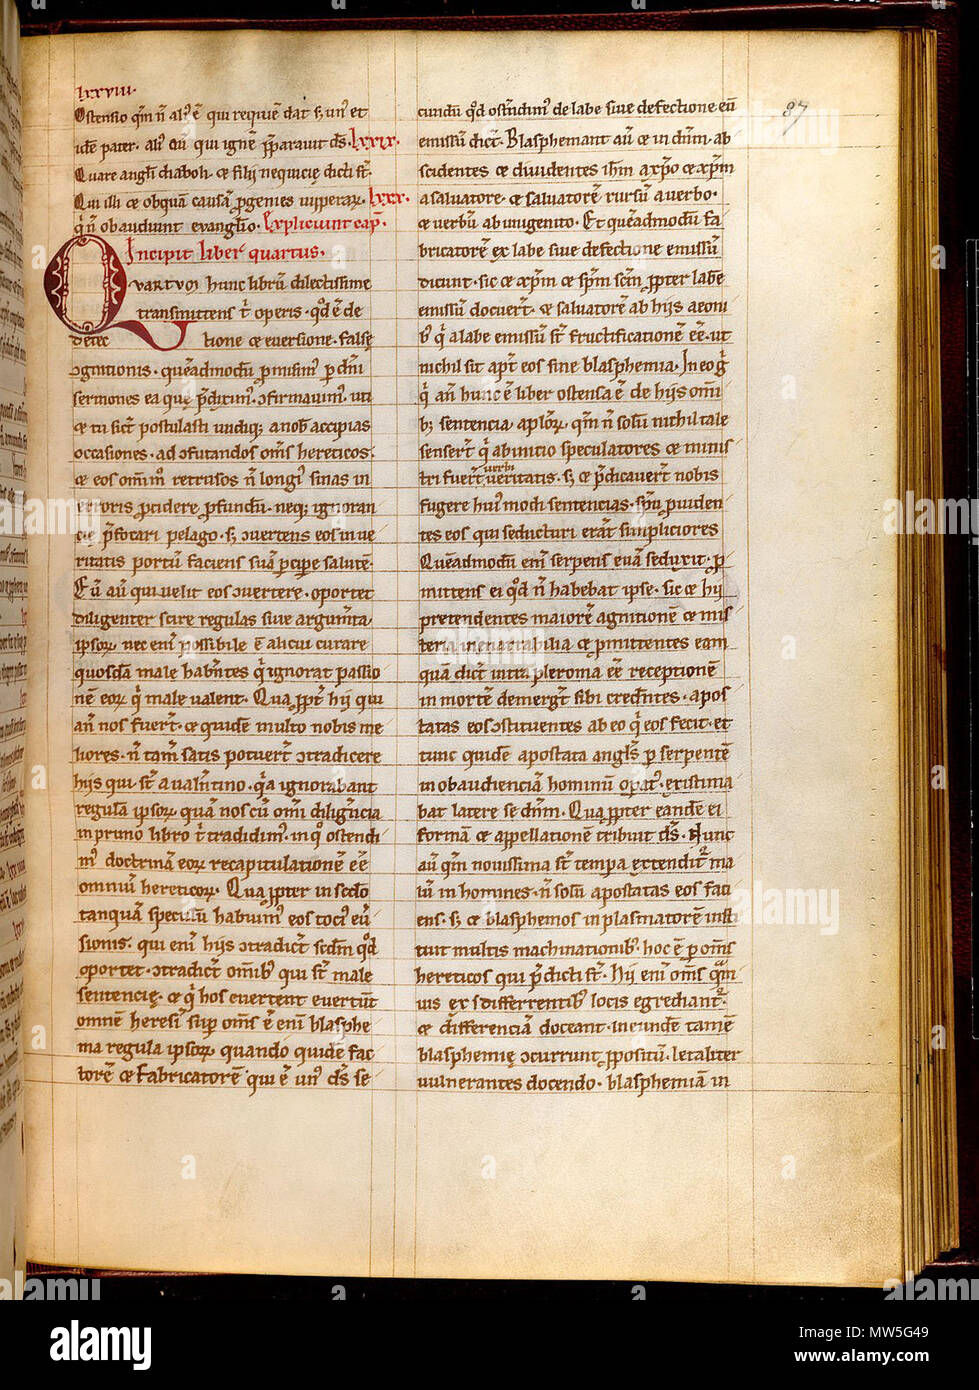 lxxviii.
Ostensio qm̄ n̄ al'ꝰ ē qui requiē dat ⁊ un' et
idē pater. ali' aū qui ignē p̄paravit ds̄. lxxix.
Quare angl̄i diaboli. ⁊ filij nequicię dicti st̄.
Qui illi ⁊ ob quā causā ꝓgenies viperaꝝ. lxxx.
q̄ n̄ obaudiunt evangl̄io. Expliciunt cap̄.
Incipit liber quartus.
QVARTVM hunc librū dilectissime
transmittens t̄ operis. qd̄ ē de
detec tione ⁊ eversione. false
ꝯgnitionis. quēadmodū ꝓmisim' ꝑ dn̄i
sermones ea que p̄dixim'. ꝯfirmavim'. uti
⁊ tu sicut postulasti undiq; a nob' accipias
occasiones. ad ꝯfutandos om̄s hereticos.
⁊ eos retrusos n̄ longi' sinas in
erroris ꝓcidere ꝓfundū. neq; ignoran
cię p̄focari pelago. s; ꝯvertens eos in ve
ritatis portū faciens suā ꝑcipe salutē.
Eū aū qui velit eos ꝯvertere. oportet
diligenter scire regulas sive argum̄ta
ipsoꝝ nec eni' possibile ē alicui curare
quosdā male habn̄tes q̄ ignorat passio
nē eoꝝ q̄ male valent. Qua ꝓpt' hij qui
an̄ nos fuer̄t. ⁊ quidē multo nobis me
liores. n̄ tam̄ satis potuer̄t ꝯtradicere
hijs qui st̄ a valn̄tino. q̄a ignorabant
regulā ipsoꝝ. quā nos cū om̄i dilign̄cia
in primo libro t̄ tradidim'. in qo ostendi
m' doctrinā eoꝝ recapitulationē ēē
omniū hereticoꝝ. Qua ꝓpter in sc̄do
tanquā speculū habuim' eos toci' ev̄
sionis. qui eni' hijs ꝯtradict̄ scd̄m qd̄
oportet. ꝯtradict̄ om̄ib' qui st̄ male
sentencię. ⁊ q̄ hos evertent evertūt
omnē heresi' sup̄ om̄s ē eni' blasphe
ma regula ipsoꝝ quando quidē fac
torē ⁊ fabricatorē qui ē un' ds̄ se
cundū qd̄ ostendim' de labe sive defectione eū
emissū dict̄. Blasphemant aū ⁊ in dn̄m. ab
scidentes ⁊ dividentes ih̄m a xp̄o ⁊ xp̄m
a salvatore. ⁊ salvatorē rursū a verbo.
⁊ verbū ab unigenito. Et quēadmodū fa
bricatorē ex labe sive defectione emissū
dicunt. sic ⁊ xp̄m ⁊ sp̄m scm̄ ꝓpter labē
emissū docuer̄t. ⁊ salvatorē ab hijs aeoni
b' q̄ a labe emissū st̄ fructificationē ēē. ut
nichil sit apt̄ eos sine blasphemia. In eo g̊
q̄ an̄ hunc ē liber ostensa ē de hijs om̄i
b; sentencia aploꝝ. qm̄ n̄ solū nichil tale
senser̄t q̄ ab initio speculatores ⁊ minis
tri fuer̄t verbi veritatis. s; ⁊ p̄dicaver̄t nobis
fugere hui'modi sentencias. spū ꝓviden
tes eos qui seducturi erāt simpliciores
Quēadmodū eni' serpens evā seduxit. ꝓ
mittens ei qd̄ n̄ habebat ipse. sic ⁊ hij
pretendentes maiorē agnitionē ⁊ mis
teria inenarrabilia ⁊ ꝓmittentes eam
quā dict̄ intra pleroma ēē receptionē
in mortē demergt̄ sibi credn̄tes. apos
tatas eos ꝯstituentes ab eo q̄ eos fecit. et
tunc quidē apostata angl's ꝑ serpentē
inobaudienciā hominū opat'. existima
bat latere se dn̄m. Qua ꝓpter eandē ei
formā ⁊ appellationē tribuit ds̄. Nunc
aū qm̄ novissima st̄ tempa extendit' ma
lū in homines. n̄ solū apostatas eos faci
ens. s; ⁊ blasphemos in plasmatorē insti
tuit multis machinationib'. hoc ē ꝑ om̄s
hereticos qui p̄dicti st̄. Hij eni' om̄s qm̄
vis ex differentib' locis egrediant'.
⁊ differencia doceant. in eundē tamē
blasphemię ꝯcurrunt ꝓpositū. letaliter
vulnerantes docendo. blasphemiā in
87
alamy
alamy stock photo
Image ID: MW5G49
www.alamy.com